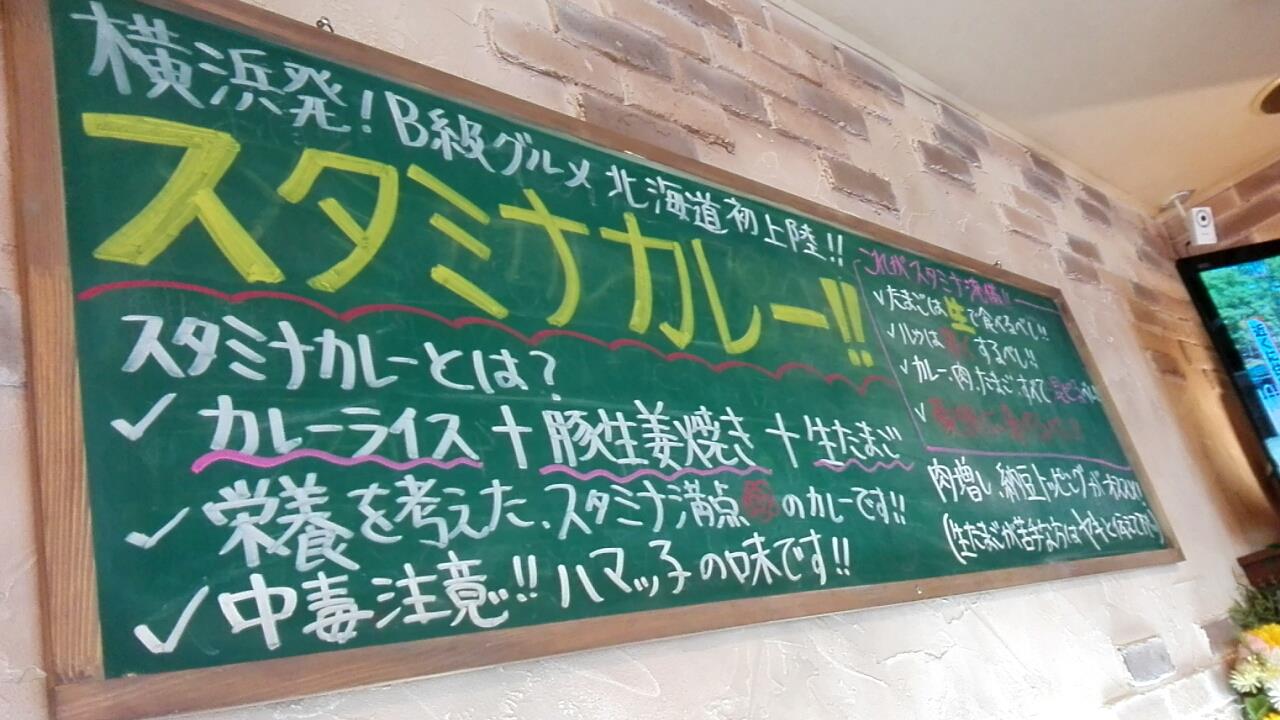 横浜発!B級グルメ 北海道初上陸!!
スタミナカレー!!
スタミナカレーとは?
✓ カレーライス+豚生姜焼き+生たまご
✓ 栄養を考えた、スタミナ満点のカレーです!!
✓ 中毒注意!! ハマッ子の味です!!
これがスタミナ流儀!!
✓たまごは生で食べるべし!!
✓ルウは するべし!!
✓カレー、肉、たまご、すべて
✓
肉増し、納豆トッピングがオススメ!!
(生たまごが苦手な方はヤキと伝えて下さい)